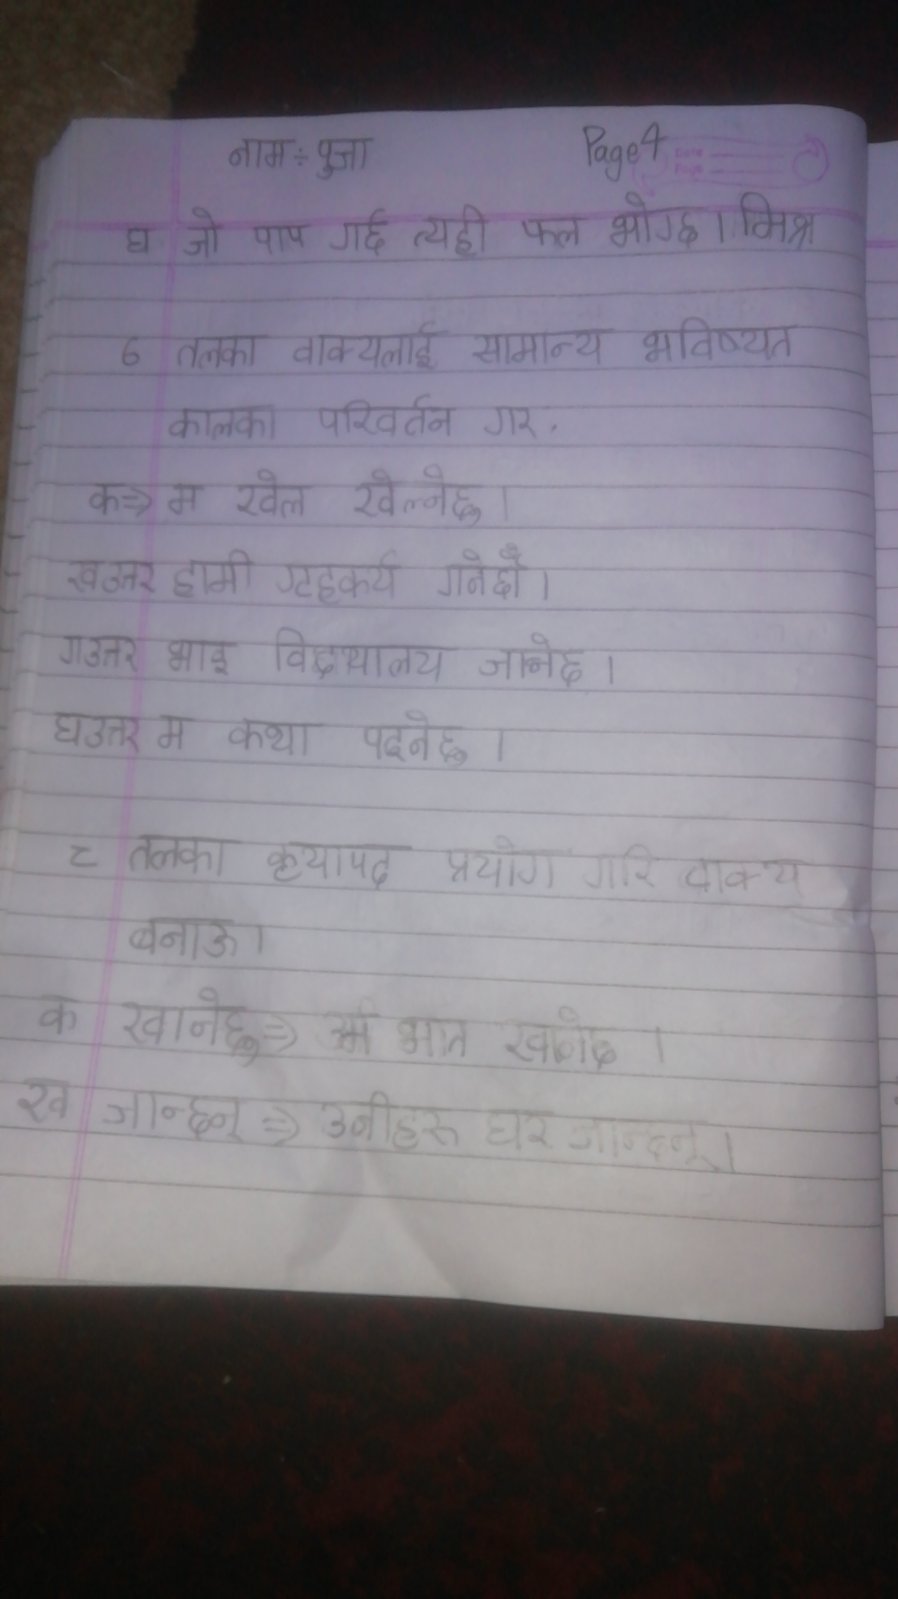 नाम÷ पुजा Page 4
Date
Page
घ जो पाप गर्द त्यही फल भोग्छ । मिश्र
७ तलका वाक्यलाई सामान्य भविष्यत
कालका परिवर्तन गर.
क⇒ म खेल खेल्नेछु ।
खउत्तर हामी गृहकर्य गनेछौ ।
गउत्तर भाइ विद्यालय जानेछ ।
घउत्तर म कथा पढ्नेछु ।
८ तलका कृयापद प्रयोग गरि वाक्य
बनाऊ ।
क खानेछु ⇒ म भात खानेछु ।
ख जान्छन् ⇒ उनीहरु घर जान्छन् ।